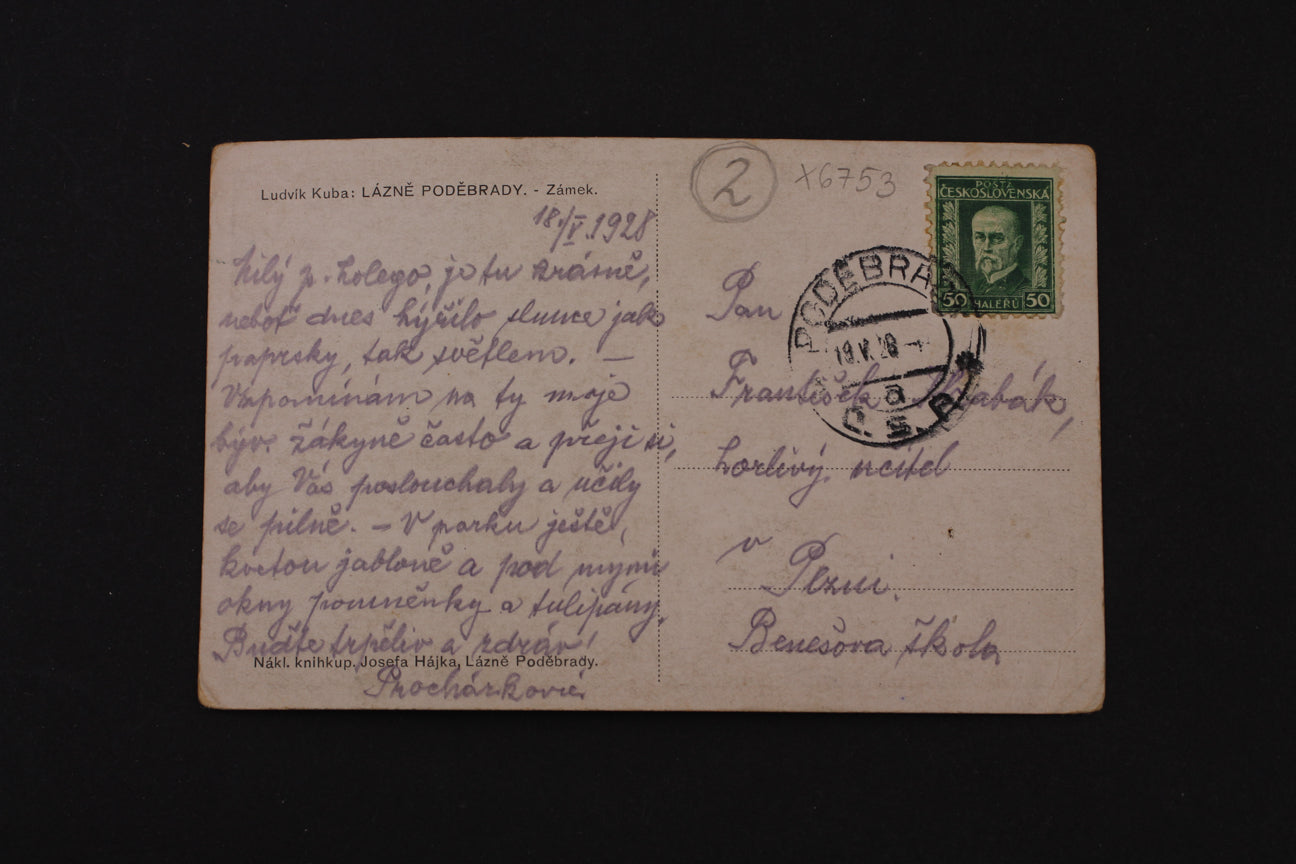 Ludvík Kuba: LÁZNĚ PODĚBRADY. - Zámek.
18./V. 1928
Milý p. kolego, je tu krásně,
neboť dnes hýřilo slunce jak
paprsky, tak světlem. —
Vzpomínám na ty moje
býv. žákyně často a přeji si,
aby Vás poslouchaly a učily
se pilně. — V parku ještě
kvetou jabloně a pod mými
okny pomněnky a tulipány.
Buďte trpěliv a zdráv!
Nákl. knihkup. Josefa Hájka, Lázně Poděbrady.
2
x6753
POŠTA
ČESKOSLOVENSKÁ
50 HALÉŘŮ 50
PODĚBRADY
18.V.28
a
Č.S.R.
Pan
František
horlivý učitel
v Plzni.
Benešova škola